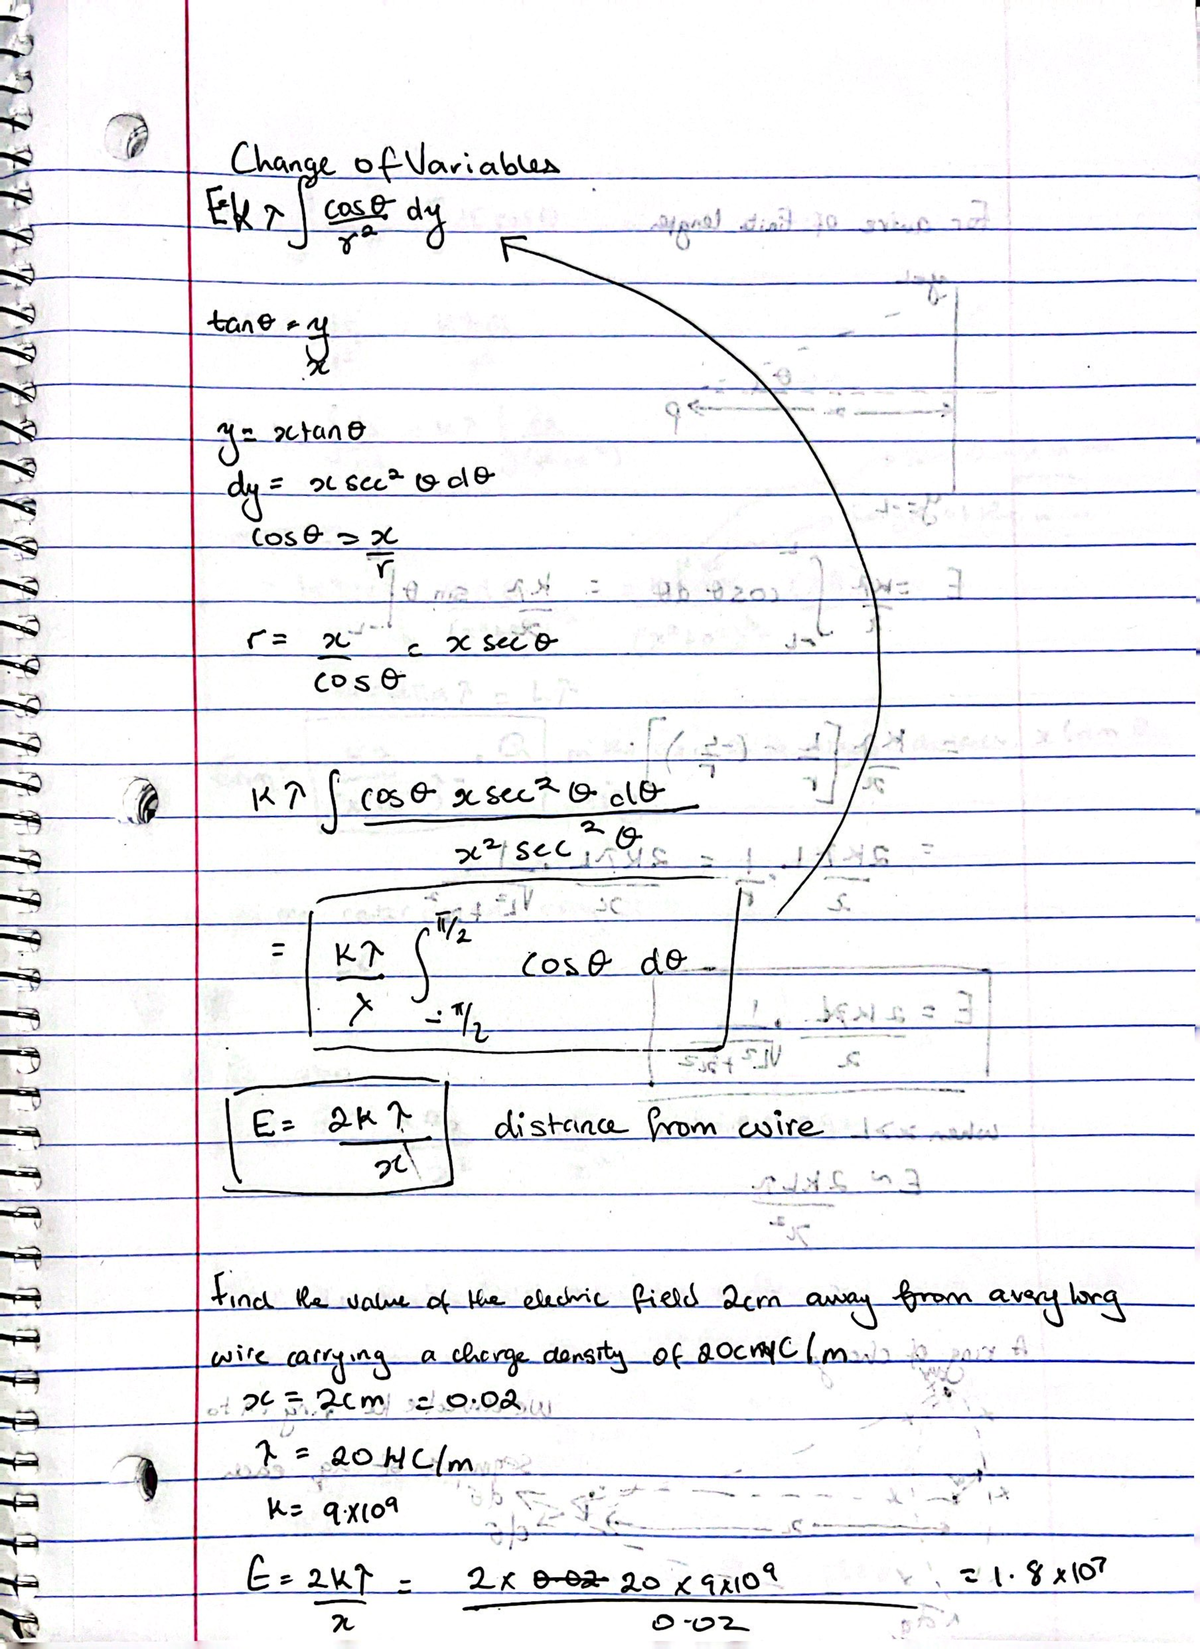 Change of Variables
E=Kλ∫ cosθ/r² dy
tanθ = y/x
y = x tanθ
dy = x sec² θ dθ
cosθ = x/r
r = x/cosθ = x secθ
Kλ ∫ cosθ x sec² θ dθ / x² sec² θ
= Kλ/x ∫ π/2 -π/2 cosθ dθ
E = 2Kλ/x distance from wire
Find the value of the electric field 2cm away from a very long
wire carrying a charge density of C/m
x = 2cm = 0.02
λ = 20 μC/m
K = 9×10⁹
E = 2Kλ/x = 2 × 0.02 20 × 9×10⁹ / 0.02 = 1.8 × 10⁷